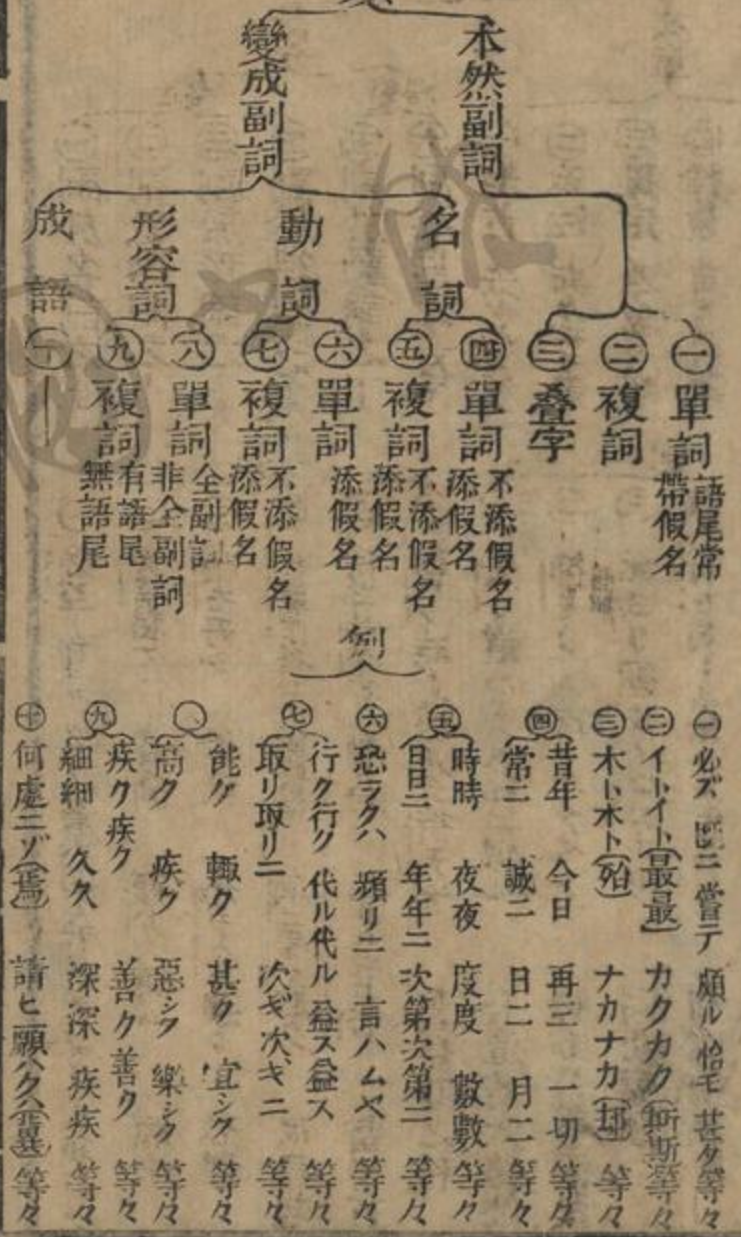 本然副詞
變成副詞
名詞
動詞
形容詞
成語
㊀單詞 語尾常帶假名
㊁複詞
㊂叠字
㊃單詞 不添假名
添假名
㊄複詞 不添假名
添假名
㊅單詞 添假名
㊆複詞 不添假名
添假名
㊇單詞 全副詞
非全副詞
㊈複詞 有語尾
無語尾
㊉
例
㊀必ズ 既ニ 嘗テ 頗ル 恰モ 甚タ 等々
㊁イトイト(最最) カクカク(斯斯) 等々
㊂木ト木ト(殆) ナカナカ 等々
㊃昔年 今日 再三 一切 等々
常ニ 誠ニ 日ニ 月ニ 等々
㊄時時 夜夜 度度 數數 等々
日日ニ 年年ニ 次第次第ニ 等々
㊅恐ラクハ 頻リニ 言ハムヤ 等々
㊆行ク行ク 代ル代ル 益ス益ス 等々
取リ取リニ 次ギ次ギニ 等々
能ク 輙ク 甚ク 宜シク 等々
高ク 疾ク 惡シク 樂シク 等々
㊈疾ク疾ク 善ク善ク 等々
細細 久久 深深 疾疾 等々
㊉何處ニゾ(焉) 請ヒ願ハクハ 等々